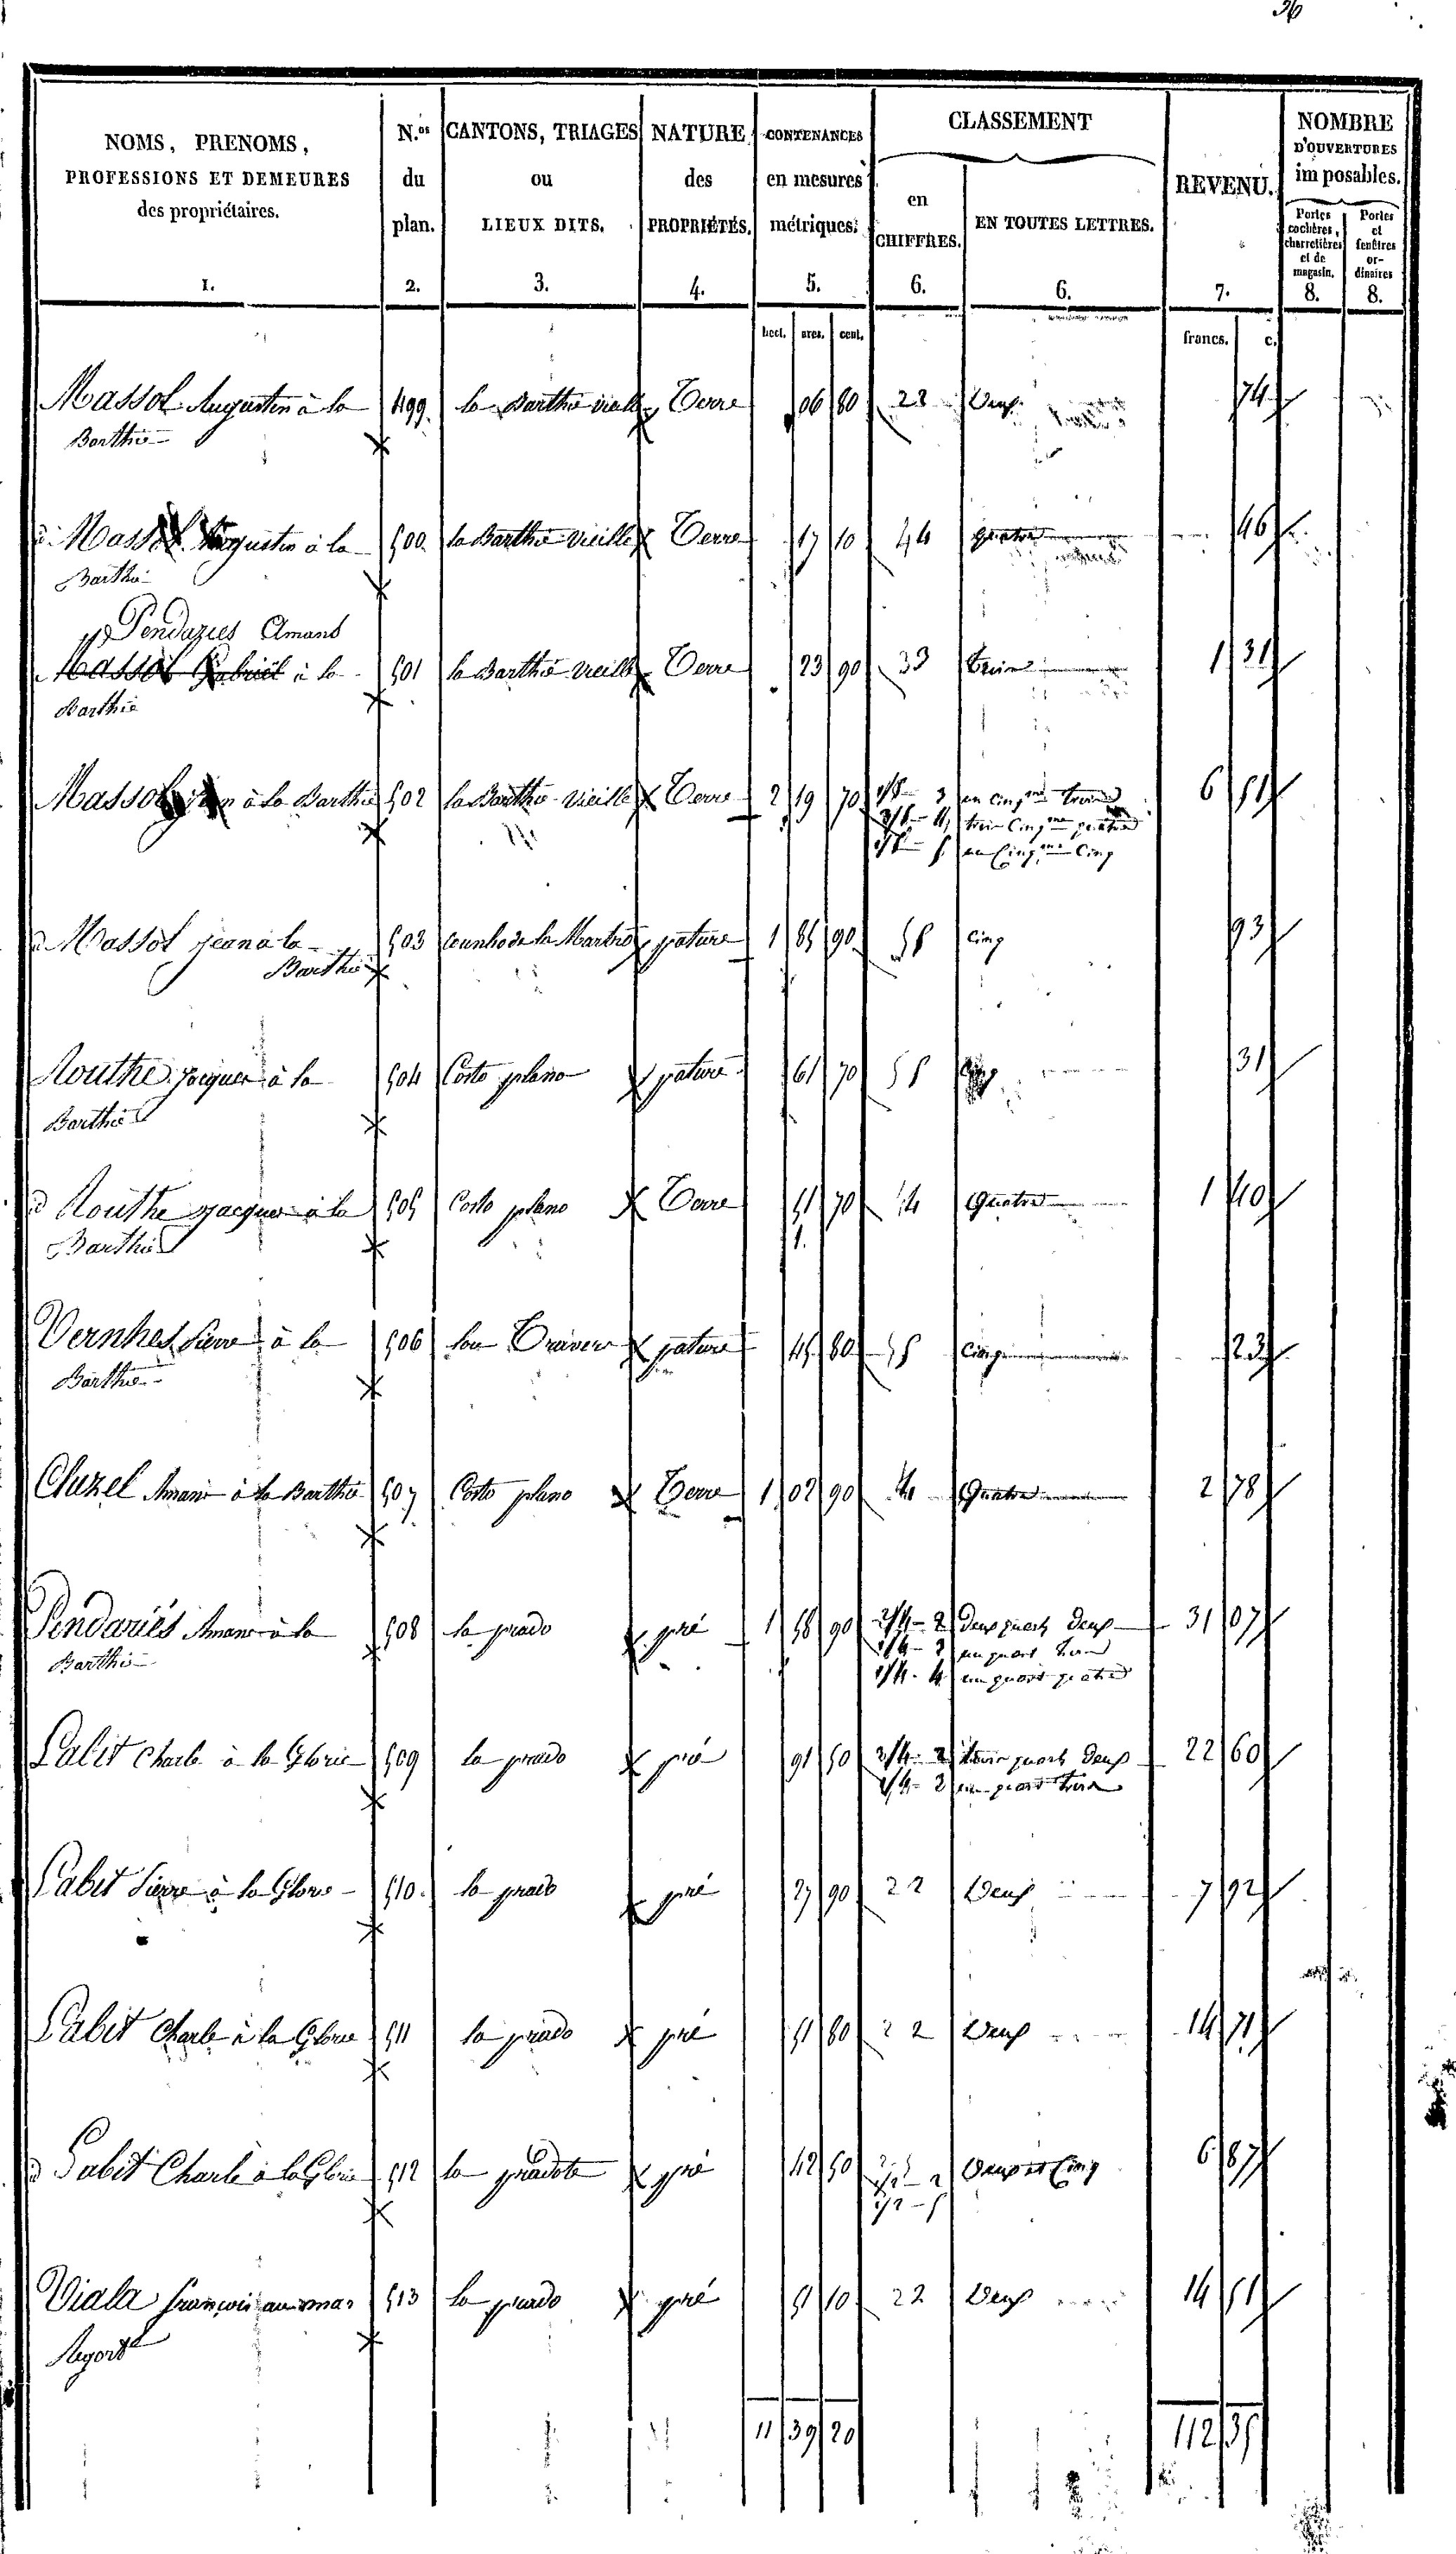 36
NOMS, PRENOMS,
PROFESSIONS ET DEMEURES
des propriétaires.
1.
N.os
du
plan.
2.
CANTONS, TRIAGES
ou
LIEUX DITS.
3.
NATURE
des
PROPRIÉTÉS.
4.
CONTENANCES
en mesures
métriques.
5.
CLASSEMENT
en
CHIFFRES.
6.
EN TOUTES LETTRES.
6.
REVENU.
7.
NOMBRE
D'OUVERTURES
imposables.
Portes
cochères,
charretières
et de
magasin.
8.
Portes
et
fenêtres
or-
dinaires
8.
hect. ares. cent. francs. c.
Massol Augustin à la 499 la Barthe vieille Terre 06 80 22 Deux 74
Barthe
d. Massol Augustin à la 500 la Barthe vieille Terre 17 10 44 quatre 46
Barthe
Pendaries Amans
Massol Gabriel à la 501 la Barthe vieille Terre 23 90 33 trois 1 31
Barthe
Massol à la Barthe 502 la Barthe vieille Terre 2 19 70 1/5 - 3 un cinqme trois 6 51
3/5 - 4 trois cinqme quatre
1/5 - 5 un cinqme cinq
d. Massol jean à la 503 pature 1 85 90 55 cinq 93
Barthe
Routhe jacques à la 504 Costo plano pature 61 70 55 31
Barthe
d. Routhe jacques à la 505 Costo plano Terre 51 70 4 quatre 1 40
Barthe
1.
Vernhes Pierre à la 506 lou Travers pature 45 80 55 cinq 23
Barthe
Cluzel Amans à la Barthe 507 Costo plano Terre 1 02 90 4 Quatre 2 78
Pendariés Amans à la 508 la prado pré 1 58 90 2/4 - 2 Deux quarts deux 31 07
Barthe 1/4 - 3 un quart trois
1/4 - 4 un quart quatre
Pabit Charle à la Glorie 509 la prado pré 91 50 3/4 - 2 trois quarts deux 22 60
1/4 - 3 un quart trois
Pabit Pierre à la Glorie 510 la prado pré 27 90 22 Deux 7 92
Pabit Charle à la Glorie 511 la prado pré 51 80 22 Deux 14 71
d. Pabit Charle à la Glorie 512 la pradote pré 42 50 1/2 - 2 Deux et Cinq 6 87
1/2 - 5
Viala françois au mas 513 la prado pré 51 10 22 Deux 14 51
11 39 20 112 35